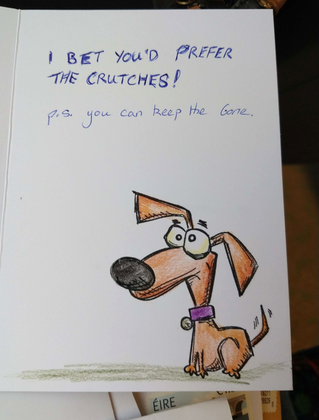 I BET YOU'D PREFER
THE CRUTCHES!
p.s. you can keep the Gone.
ÉIRE